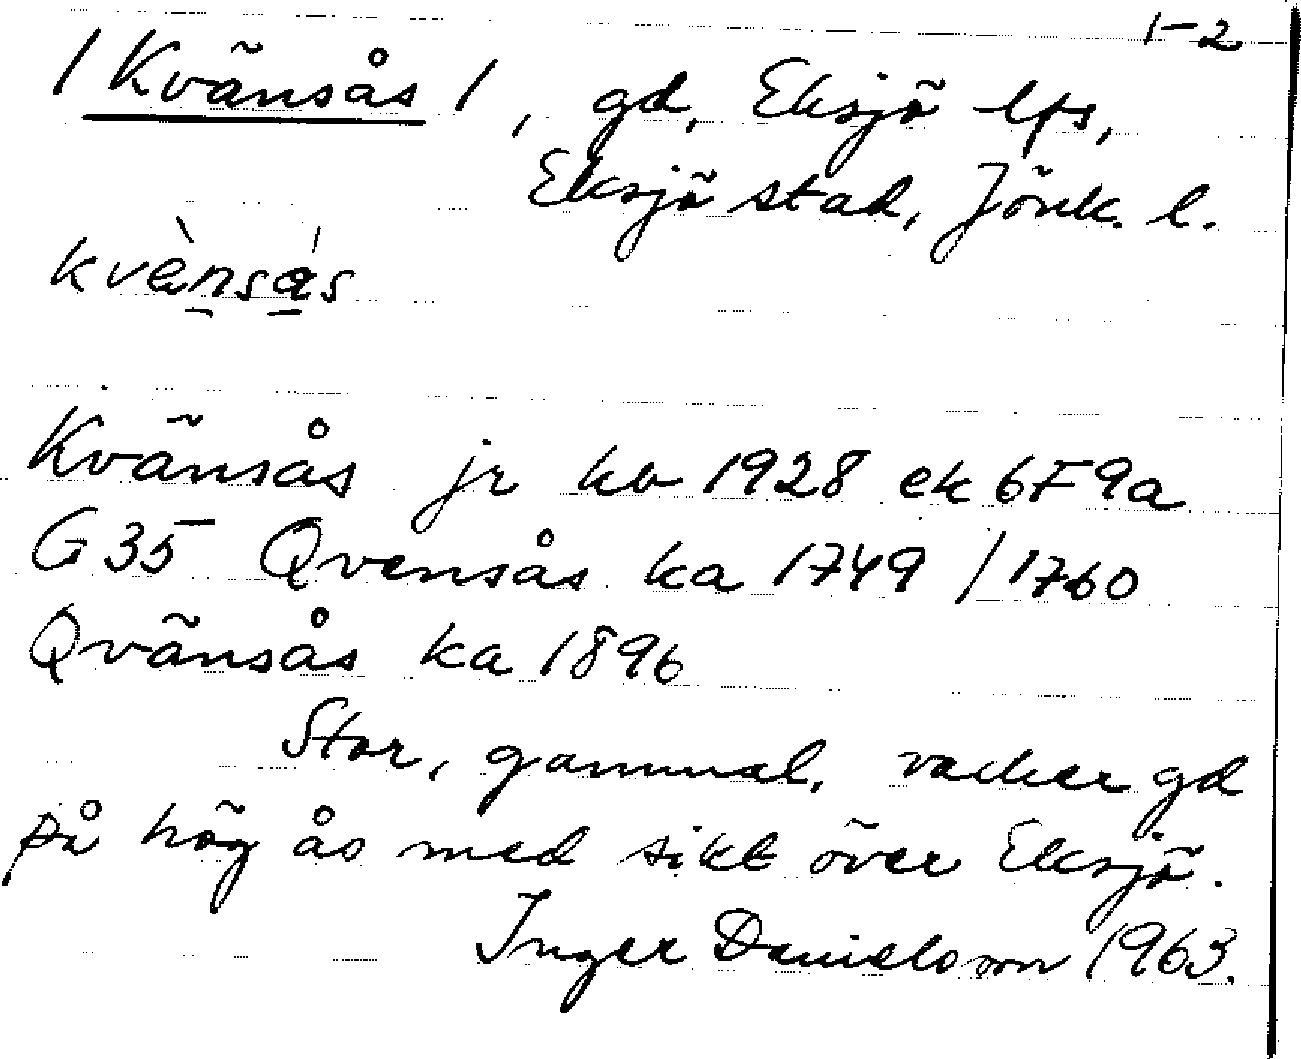 1-2
/ Kvänsås /, gd, Eksjö lfs,
Eksjö stad, Jönk. l.
kvènsás
Kvänsås jr kb 1928 ek 6F9a
G35 Qvensås ka 1749 / 1760
Qvänsås ka 1896
Stor, gammal, vacker gd
på hög ås med sikt över Eksjö.
Inger Danielsson 1963.